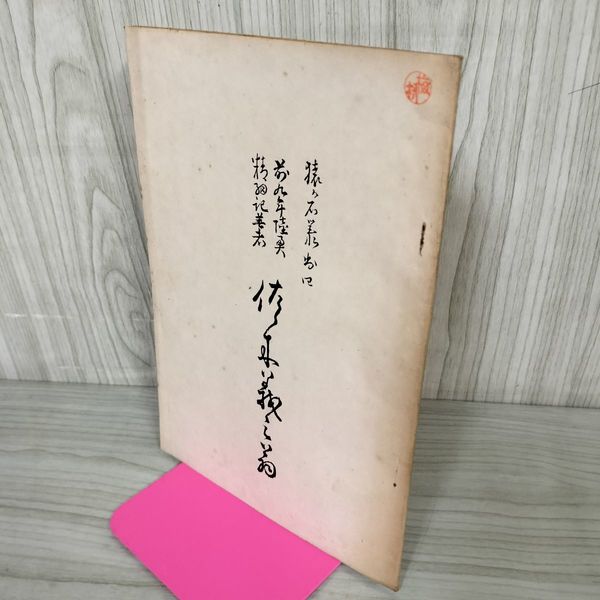 猿ヶ石叢書四
前九年陸奥
精細記著者
佐々木義之翁